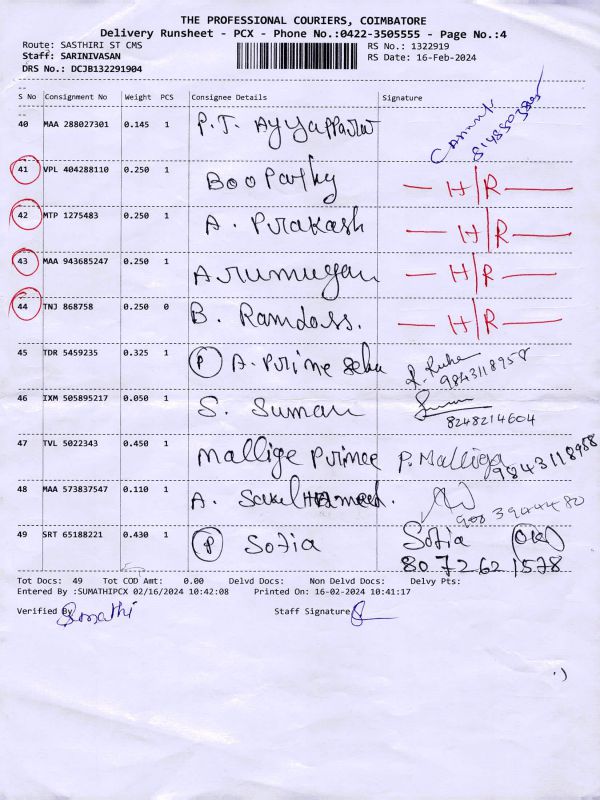 THE PROFESSIONAL COURIERS, COIMBATORE
Delivery Runsheet - PCX - Phone No.:0422-3505555 - Page No.:4
Route: SASTHIRI ST CMS RS No.: 1322919
Staff: SARINIVASAN RS Date: 16-Feb-2024
DRS No.: DCJB132291904
S No Consignment No Weight PCS Consignee Details Signature
40 MAA 288027301 0.145 1 P.T. Ayyapparaj
41 VPL 404288110 0.250 1 Boopathy H/R
42 MTP 1275483 0.250 1 A. Prakash H/R
43 MAA 943685247 0.250 1 Arumugan H/R
44 TNJ 868758 0.250 0 B. Ramdoss. H/R
45 TDR 5459235 0.325 1 (P) A. Prime
9843118958
46 IXM 505895217 0.050 1 S. Suman
8248214604
47 TVL 5022343 0.450 1 Mallige Prince P. Malliga 9843118958
48 MAA 573837547 0.110 1 A.
49 SRT 65188221 0.430 1 (P) Sofia Sofia
80 72 62 1578
Tot Docs: 49 Tot COD Amt: 0.00 Delvd Docs: Non Delvd Docs: Delvy Pts:
Entered By :SUMATHIPCX 02/16/2024 10:42:08 Printed On: 16-02-2024 10:41:17
Verified By Sumathi Staff Signature